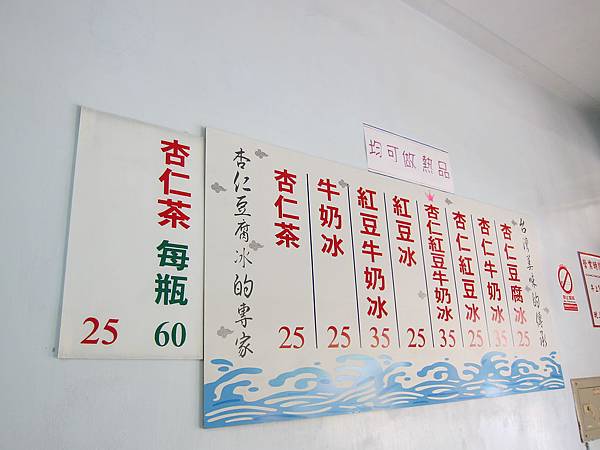 均可做熱品
台灣美味的傳承
杏仁豆腐冰 25
杏仁牛奶冰 35
杏仁紅豆冰 25
杏仁紅豆牛奶冰 35
紅豆冰 25
紅豆牛奶冰 35
牛奶冰 25
杏仁茶 25
杏仁豆腐冰的專家
杏仁茶 每瓶 60
25